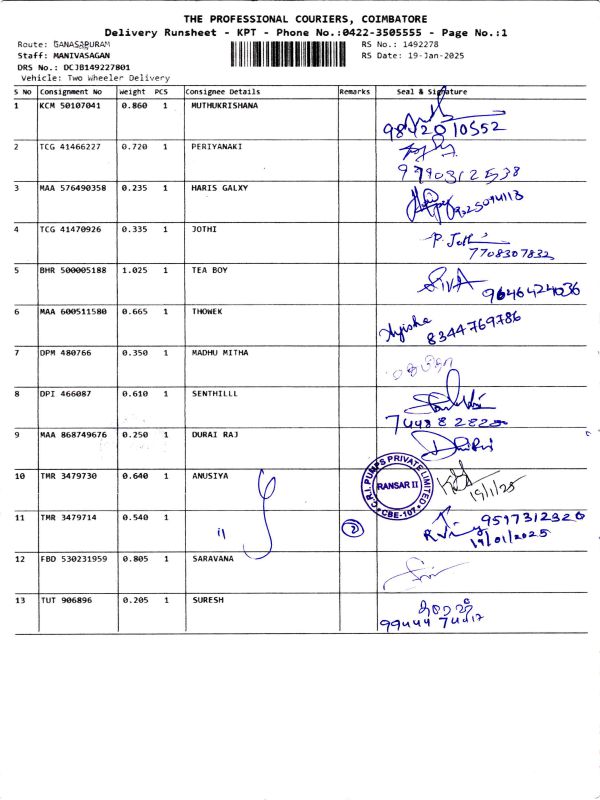 THE PROFESSIONAL COURIERS, COIMBATORE
Delivery Runsheet - KPT - Phone No.:0422-3505555 - Page No.:1
Route: GANASAPURAM
RS No.: 1492278
Staff: MANIVASAGAN
RS Date: 19-Jan-2025
DRS No.: DCJB149227801
Vehicle: Two Wheeler Delivery
S No Consignment No Weight PCS Consignee Details Remarks Seal & Signature
1 KCM 50107041 0.860 1 MUTHUKRISHANA
9842010552
2 TCG 41466227 0.720 1 PERIYANAKI
9790312538
3 MAA 576490358 0.235 1 HARIS GALXY
9025094113
4 TCG 41470926 0.335 1 JOTHI P. Jothi
7708307832
5 BHR 500005188 1.025 1 TEA BOY SIVA
9646424036
6 MAA 600511580 0.665 1 THOWEK Ayisha
8344769786
7 DPM 480766 0.350 1 MADHU MITHA
8 DPI 466087 0.610 1 SENTHILLL
9 MAA 868749676 0.250 1 DURAI RAJ
10 TMR 3479730 0.640 1 ANUSIYA
C.R.I. PUMPS PRIVATE LIMITED
RANSAR II
CBE-107
19/1/25
11 TMR 3479714 0.540 1 11 2
9597312320
19/01/2025
12 FBD 530231959 0.805 1 SARAVANA
13 TUT 906896 0.205 1 SURESH
99444 74417